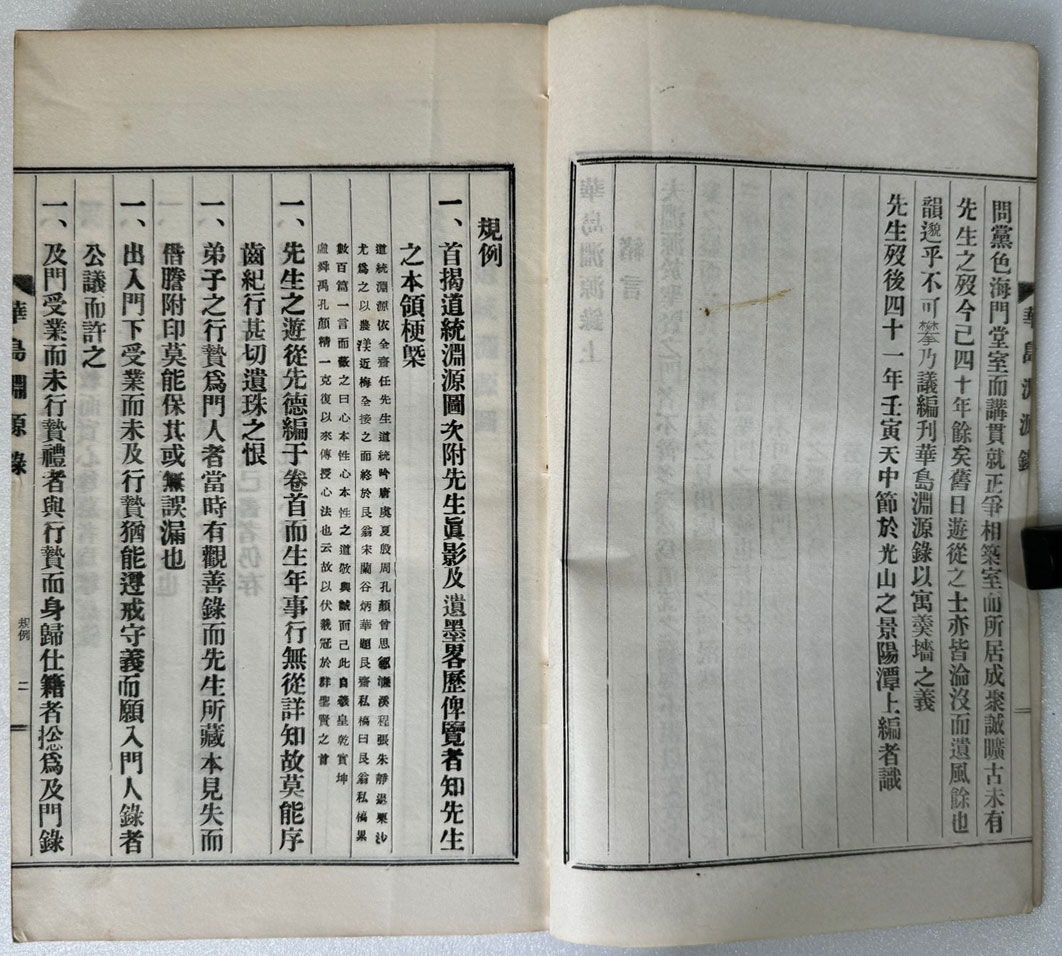 問黨色海門堂室而講貫就正爭相築室而所居成聚誠曠古未有
先生之歿今己四十年餘矣舊日遊從之士亦皆淪沒而遺風餘也
韻邈乎不可攀乃議編刊華島淵源錄以寓羹墻之義
先生歿後四十一年壬寅天中節於光山之景陽潭上編者識
規例
一、首揭道統淵源圖次附先生眞影及遺墨畧歷俾覽者知先生
之本領梗槩
道統淵源依全齋任先生道統吟唐虞夏殷周孔顏曾思鄒濂溪程張朱靜退栗沙
尤爲之以農渼近梅全接之而終於艮翁宋蘭谷炳華題艮齋私稿曰艮翁私稿累
數百篇一言而蔽之曰心本性心本性之道敬與誠而己此自羲皇乾實坤
虛舜禹孔顏精一克復以來傳授心法也云故以伏羲冠於群聖賢之首
一、先生之遊從先德編于卷首而生年事行無從詳知故莫能序
齒紀行甚切遺珠之恨
一、弟子之行贄爲門人者當時有觀善錄而先生所藏本見失而
借謄附印莫能保其或無誤漏也
一、出入門下受業而未及行贄猶能遵戒守義而願入門人錄者
公議而許之
一、及門受業而未行贄禮者與行贄而身歸仕籍者揔爲及門錄
華島淵源錄
規例
二